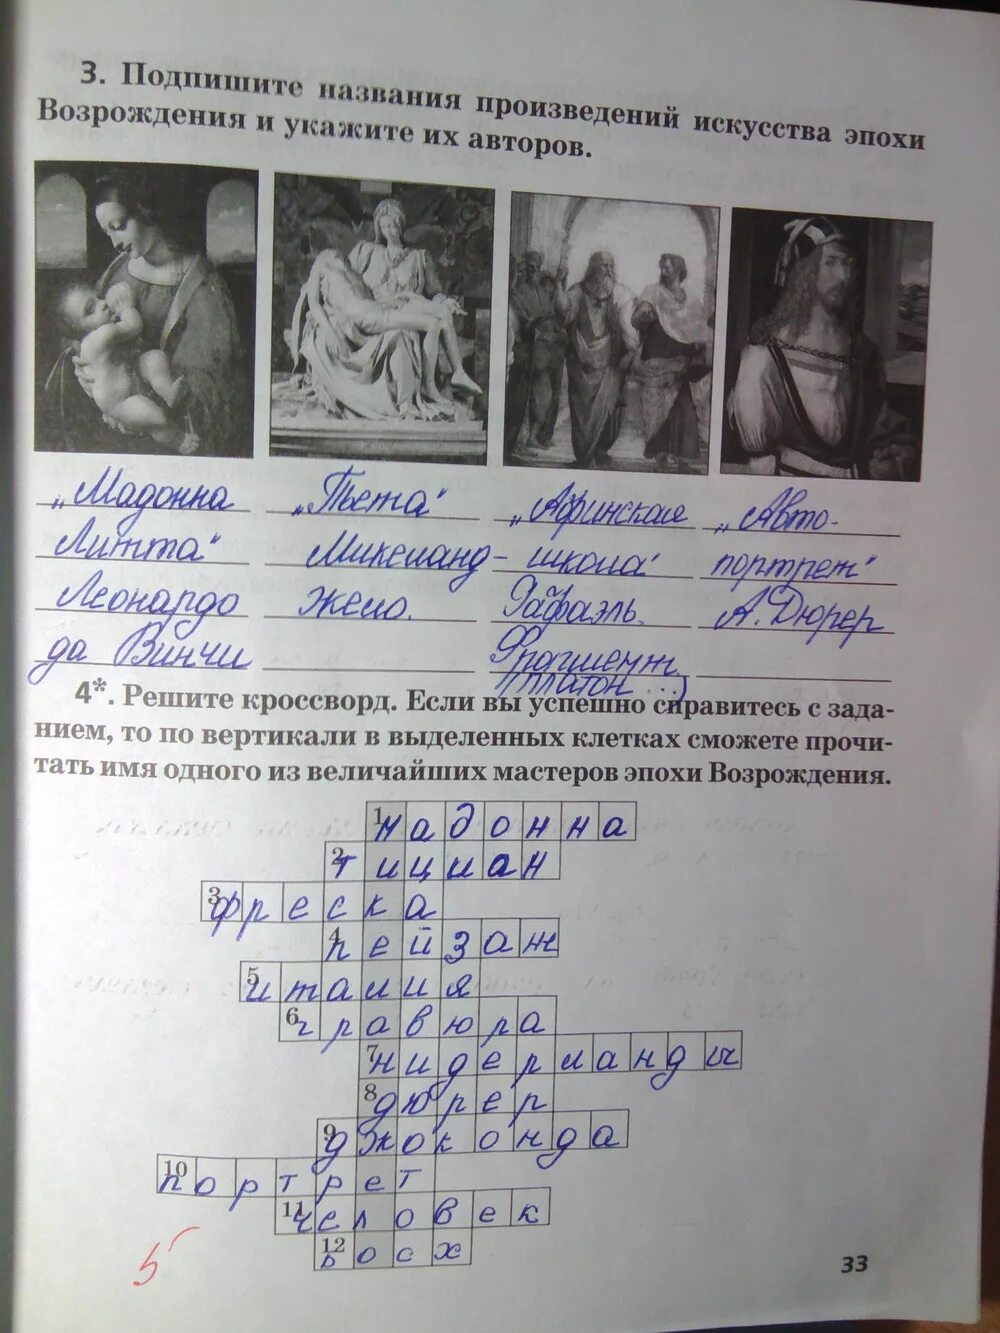 3. Подпишите названия произведений искусства эпохи
Возрождения и укажите их авторов.
„Мадонна
Литта“
Леонардо
да Винчи
„Пьета“
Микеланд-
жело.
„Афинская
школа“
Рафаэль.
Фрагмент
(Платон ...)
„Авто-
портрет“
А. Дюрер
4*. Решите кроссворд. Если вы успешно справитесь с зада-
нием, то по вертикали в выделенных клетках сможете прочи-
тать имя одного из величайших мастеров эпохи Возрождения.
1 мадонна
2 тициан
3 фреска
4 пейзаж
5 италия
6 гравюра
7 нидерланды
8 дюрер
9 джоконда
10 портрет
11 человек
12 босх
5
33